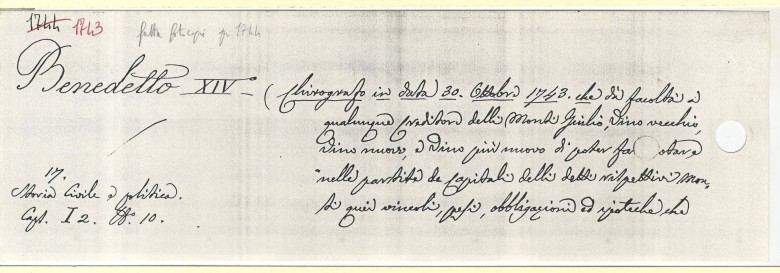 1744 1743 fatta fotocopia per 1744
Benedetto XIV.° (Chirografo in data 30. Ottobre 1743. che dà facoltà a
qualunque Creditore delli Monti Giulio, Vino vecchio,
Vino nuovo, e Vino più nuovo di poter fa otare
nelle partite de Capitali delli detti rispettivi Mon,,
ti quei vincoli, pesi, obbligazioni ed ipoteche che
17.
Storia Civile e politica.
Caps. I 2. N.° 10.